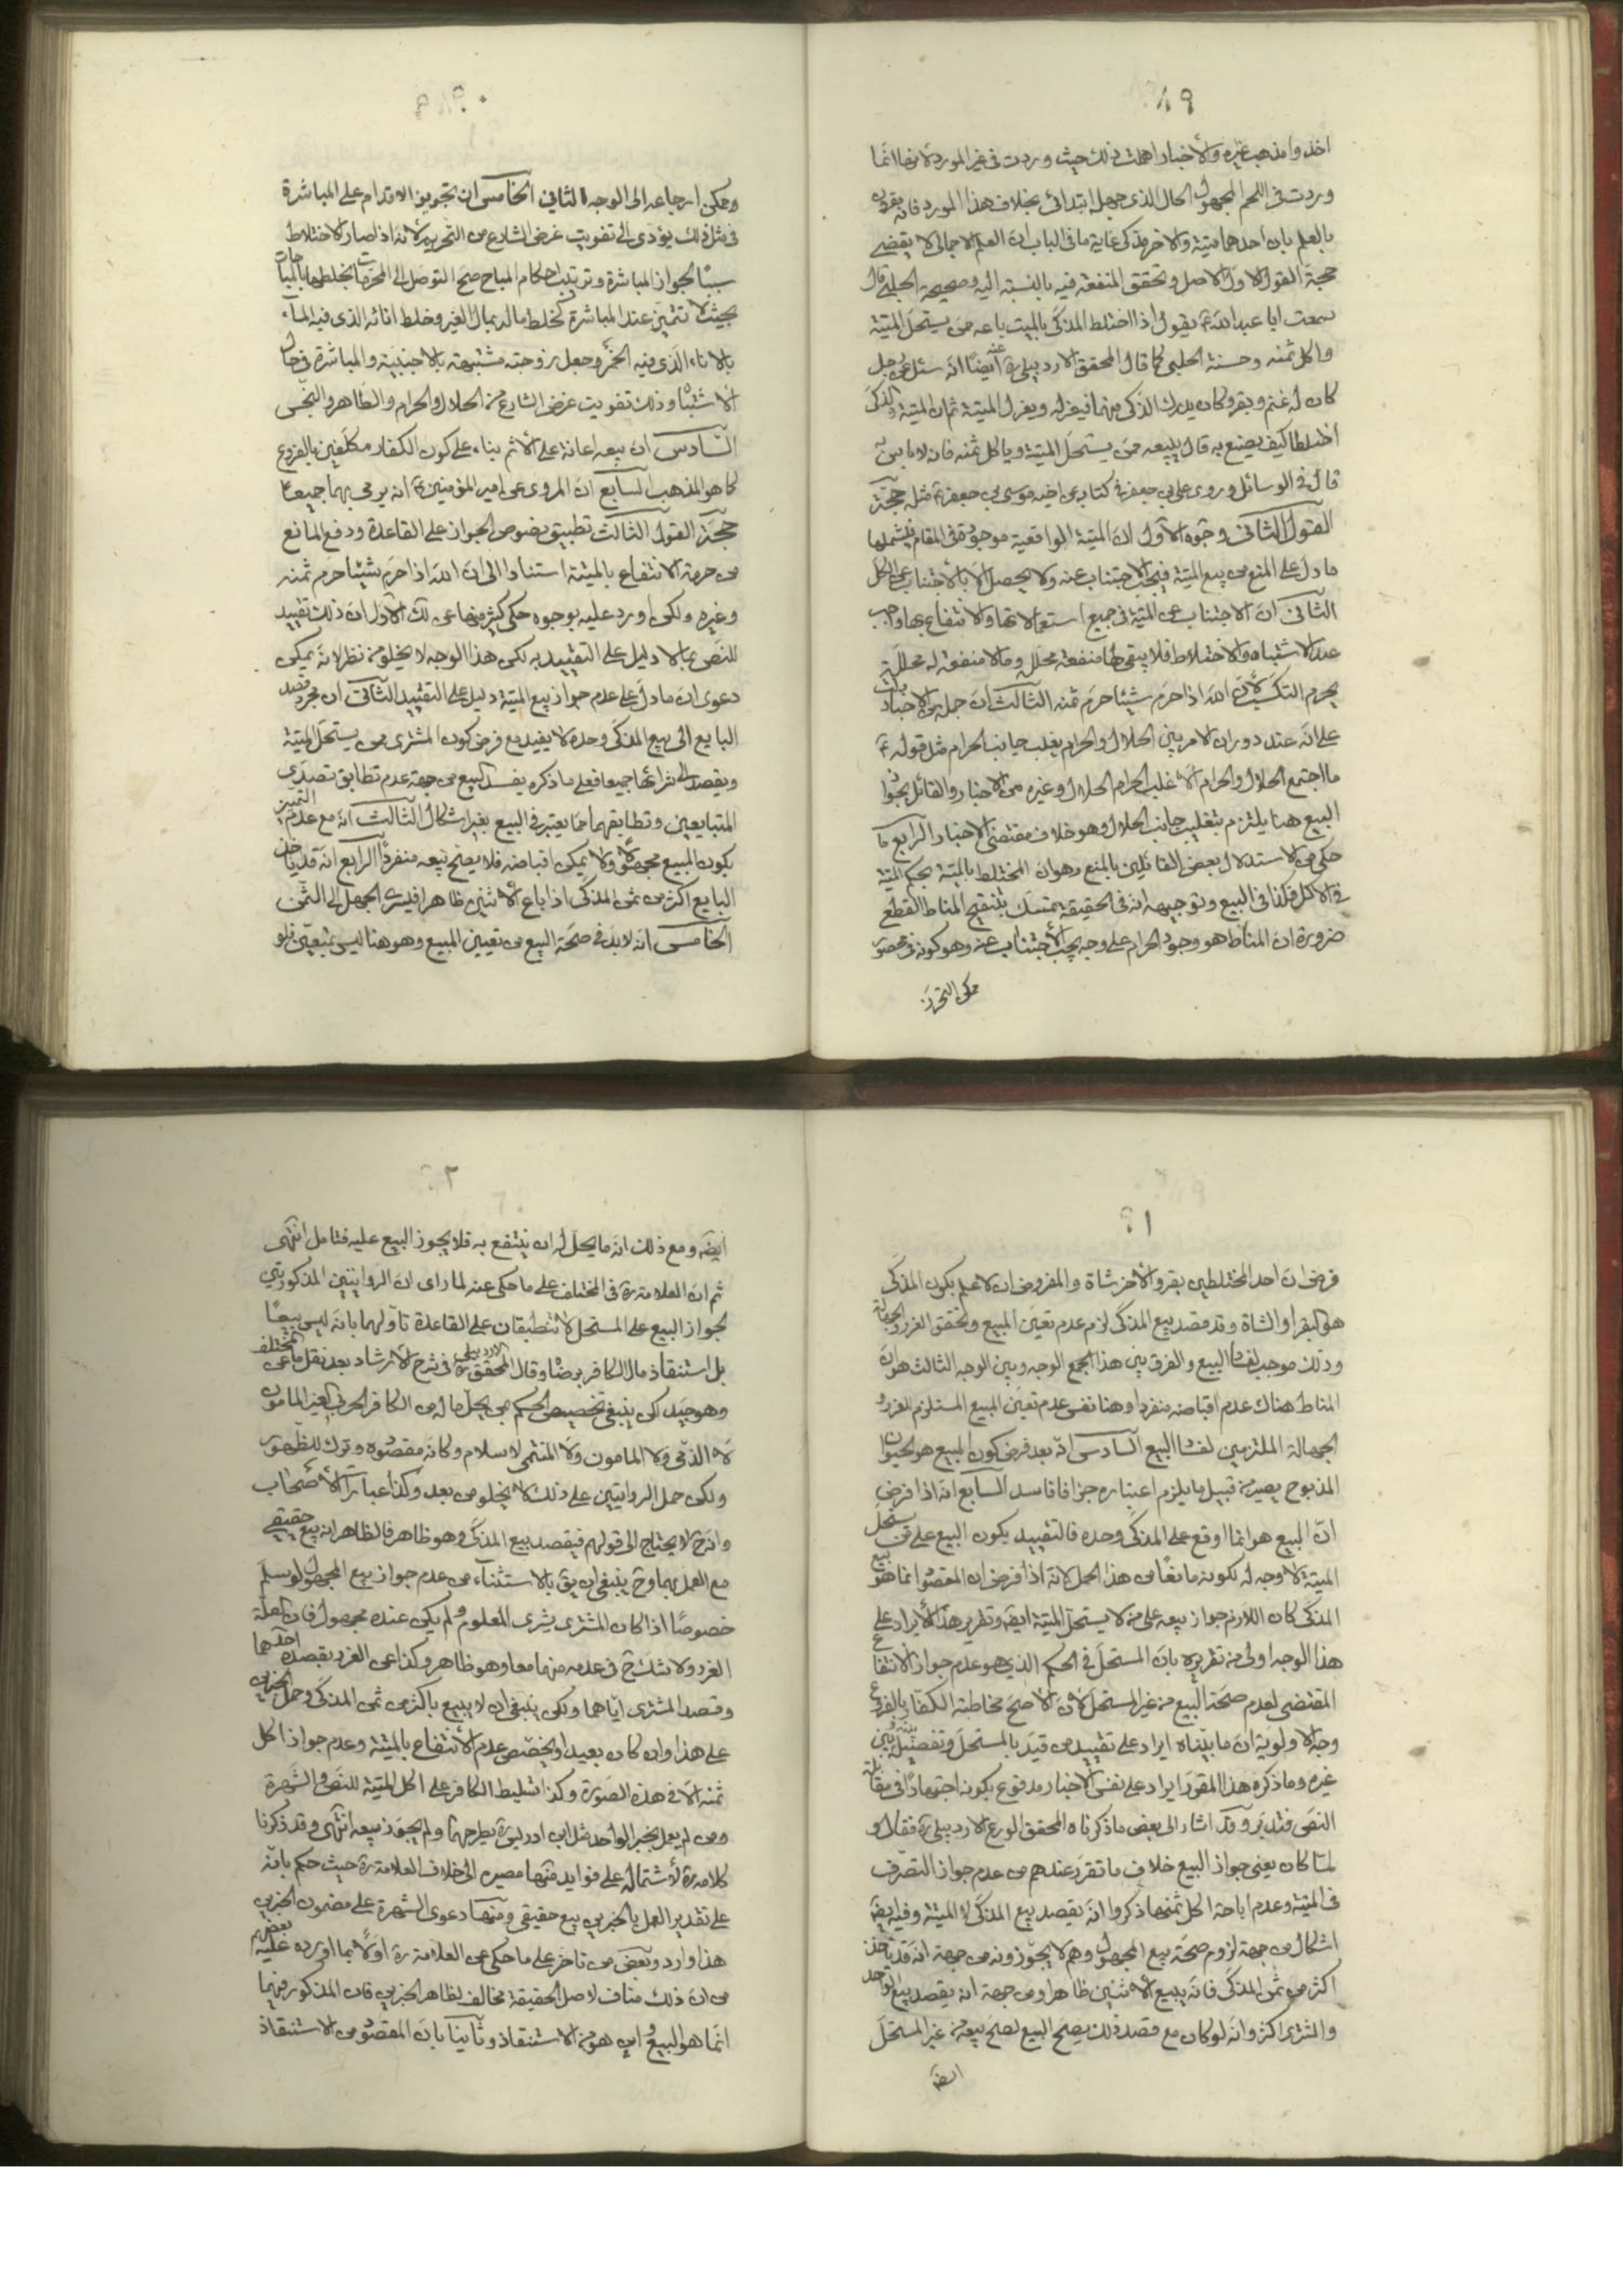 ٨٩
اخذوا مذهب غيره والأخبار اهملت ذلك حيث وردت في غير المورد لانها انما
وردت في اللحم المجهول الحال الذي جهل ابتدائي بخلاف هذا المورد فانه مقرون
بالعلم بان احدهما ميتة والاخر مذكى غاية ما في الباب ان العلم الاجمالي لا يقضي
حجة القول الاول الاصل وتحقق المنفعة فيه بالنسبة اليه وصحيحة الحلبي قال
سمعت ابا عبد الله ع يقول اذا اختلط المذكى بالميت باعه ممن يستحل الميتة
واكل ثمنه وحسنة الحلبي كما قال المحقق الاردبيلي ره عنه أيضًا انه سئل عن رجل
كان له غنم وبقر وكان يدرك الذكي منهما فيعزله ويعزل الميتة ثم ان الميتة والذكى
اختلطا كيف يصنع به قال يبيعه ممن يستحل الميتة وياكل ثمنه فانه لا باس به
قال في الوسائل وروى علي بن جعفر في كتابه عن اخيه موسى بن جعفر ع مثله حجّة
القول الثاني وجوه الأول ان الميتة الواقعية موجودة في المقام فيشملها
ما دل على المنع من بيع الميتة فيجب الاجتناب عنه ولا يحصل الا بالأجتناب عن الكل
الثاني ان الاجتناب عن الميتة في جميع استعمالاتها والانتفاع بها واجب
عند الاشتباه والاختلاط فلا يبقى لها منفعة محلل وما لا منفعة له محللة
يحرم التكسب لأن الله اذا حرم شيئا حرم ثمنه الثالث ان جملة من الاخبار دلت
على انه عند دوران الامر بين الحلال والحرام يغلب جانب الحرام مثل قوله ع
ما اجتمع الحلال والحرام الا غلب الحرام الحلال وغيره من الاخبار والقائل بجواز
البيع هنا يلتزم بتغليب جانب الحلال وهو خلاف مقتضى الاخبار الرابع ما
حكي من الاستدلال بعض القائلين بالمنع وهو ان المختلط بالميتة بحكم الميتة
في الاكل فكذا في البيع وتوجيهه انه في الحقيقة تمسك بتنقيح المناط القطع
ضرورة ان المناط هو وجود الحرام على وجه يجب الأجتناب عنه وهو كونه في محصور
ممكن التحرز
٩٠
ويمكن ارجاعه الى الوجه الثاني الخامس ان تجويز الاقدام على المباشرة
في مثل ذلك يؤدي الى تفويت غرض الشارع من التحريم لانه اذا صار الاختلاط
سببًا لجواز المباشرة وترتيب احكام المباح صح التوصل الى المحرمات بخلطها بالمباحات
بحيث لا تتميز عند المباشرة كخلط ماله بمال الغير وخلط انائه الذي فيه الماء
بالاناء الذي فيه الخمر وجعل زوجته مشتبهة بالاجنبية والمباشرة في حال
الاشتباه وذلك تفويت غرض الشارع من الحلال والحرام والطاهر والنجس
السّادس ان بيعه اعانة على الأثم بناء على كون الكفار مكلفين بالفروع
كما هو المذهب السابع ان المروي عن امير المؤمنين ع انه يرمى بهما جميعا
حجّة القول الثالث تطبيق نصوص الجواز على القاعدة ودفع المانع
من حرمة الانتفاع بالميتة استنادا الى ان الله اذا حرم شيئا حرم ثمنه
وغيره ولكن اورد عليه بوجوه حكي كثير منها عن لك الأول ان ذلك تقييد
للنص بما لا دليل على التقييد به لكن هذا الوجه لا يخلو من نظر لانه يمكن
دعوى ان ما دل على عدم جواز بيع الميتة دليل على التقييد الثاني ان مجرد قصد
البايع الى بيع المذكى وحده لا يفيد مع فرض كون المشتري ممن يستحل الميتة
ويقصد الى شرائها جميعا فعلى ما ذكره يفسد البيع من جهة عدم تطابق قصدي
المتبايعين وتطابقهما مما يعتبر في البيع بغير اشكال الثالث انه مع عدم التميز
يكون المبيع مجهولا ولا يمكن اقباضه فلا يصح بيعه منفردا الرابع انه قد ياخذ
البايع اكثر من ثمن المذكى اذا باع الأثنين ظاهرا فيسرى الجهل الى الثمن
الخامس انه لا بد في صحة البيع من تعيين المبيع وهو هنا ليس بمتعين فلو
٩١
فرض ان احد المختلطين بقر والأخر شاة والمفروض ان لا علم بكون المذكى
هو البقر او الشاة وقد قصد بيع المذكى لزم عدم تعين المبيع وتحقق الغرر والجهالة
وذلك موجب لفساد البيع والفرق بين هذا الوجه وبين الوجه الثالث هو ان
المناط هناك عدم اقباضه منفردا وهنا نفس عدم تعين المبيع المستلزم للغرر و
الجهالة الملتزمين لفساد البيع السادس انّه بعد فرض كون المبيع هو الحيوان
المذبوح يصير من قبيل ما يلزم اعتباره جزافا فاسد السابع انه اذا فرض
انّ البيع هو انما اوقع على المذكى وحده فالتقييد بكون البيع على من يستحل
الميتة لا وجه له لكونه مانعًا من هذا الحمل لانه اذا فرض ان المقصود انما هو بيع
المذكى كان اللازم جواز بيعه على من لا يستحل الميتة ايضا وتقرير هذا الأيراد على
هذا الوجه اولى من تقريره بان المستحل في الحكم الذي هو عدم جواز الانتفاع
المقتضي لعدم صحة البيع من غير المستحل لان الاصح مخاطبة الكفار بالفروع
وجه الاولوية ان ما بيّناه ايراد على تقييد من قيد بالمستحل وتفصيله بينه وبين
غيره وما ذكره هذا المقرر ايراد على نفس الاخبار مدفوع بكونه اجتهادًا في مقابلة
النص فتدبر وقد اشار الى بعض ما ذكرناه المحقق الورع الاردبيلي ره فقال و
لمّا كان يعني جواز البيع خلاف ما تقرر عندهم من عدم جواز التصرف
في الميتة وعدم اباحة اكل ثمنها ذكروا انه يقصد بيع المذكى لا الميتة وفيه ايضا
اشكال من جهة لزوم صحة بيع المجهول وهم لا يجوّزونه من جهة انه قد ياخذ
اكثر من ثمن المذكى فانه يبيع الأثنين ظاهرا ومن جهة انه يقصد بيع الواحد
والمشتري اكثر وانه لو كان مع قصد ذلك يصح البيع لصح بيعه من غير المستحل
ايضا
٩٢
ايضا ومع ذلك انه ما يحل له ان ينتفع به فلا يجوز البيع عليه فتامل انتهى
ثم ان العلامة ره في المختلف على ما حكي عنه لما راى ان الروايتين المذكورتين
لجواز البيع على المستحل لا تنطبقان على القاعدة تاوّلهما بانه ليس بيعًا
بل استنقاذ مال الكافر برضاه وقال المحقق الاردبيلي ره في شرح الأرشاد بعد نقل ما عن المختلف
وهو جيد لكن ينبغي تخصيص الحكم بمن يحل ماله من الكافر الحربي الغير المامون
لا الذمي ولا المامون ولا المنتمي لاسلام وكانه مقصوده وترك للظهور
ولكن حمل الروايتين على ذلك لا يخلو من بعد وكذا عبارات الأصحاب
وانه ح لا يحتاج الى قولهم فيقصد بيع المذكى وهو ظاهر فالظاهر انه بيع حقيقي
مع العمل بهما وح ينبغي ان يق بالاستثناء من عدم جواز بيع المجهول لو سلم
خصوصًا اذا كان المشتري يشري المعلوم ولم يكن عنده مجهول فان العلة
الغرر ولا شك ح في عدمه منهما معا وهو ظاهر وكذا عن الغرر بقصده احدهما
وقصد المشتري اياهما ولكن ينبغي ان لا يبيع باكثر من ثمن المذكى وحمل الخبرين
على هذا وان كان بعيدا ويخصص عدم الأنتفاع بالميتة وعدم جواز اكل
ثمنه الا في هذه الصورة وكذا تسليط الكافر على اكل الميتة للنص والشهرة
ومن لم يعمل بخبر الواحد مثل ابن ادريس ره يطرحهما ولم يجوز بيعه انتهى وقد ذكرنا
كلامه ره لأشتماله على فوايد منها مصيره الى خلاف العلامة ره حيث حكم بانه
على تقدير العمل بالخبرين بيع حقيقي ومنها دعوى الشهرة على مضمون الخبرين
هذا وارد وبعض من تاخر على ما حكي عن العلامة ره اولًا بما اورده عليه بعضهم
من ان ذلك مناف لاصل الحقيقة مخالف لظاهر الخبرين فان المذكور فيهما
انما هو البيع واين هو من الاستنقاذ وثانيا بان المقصود من الاستنقاذ